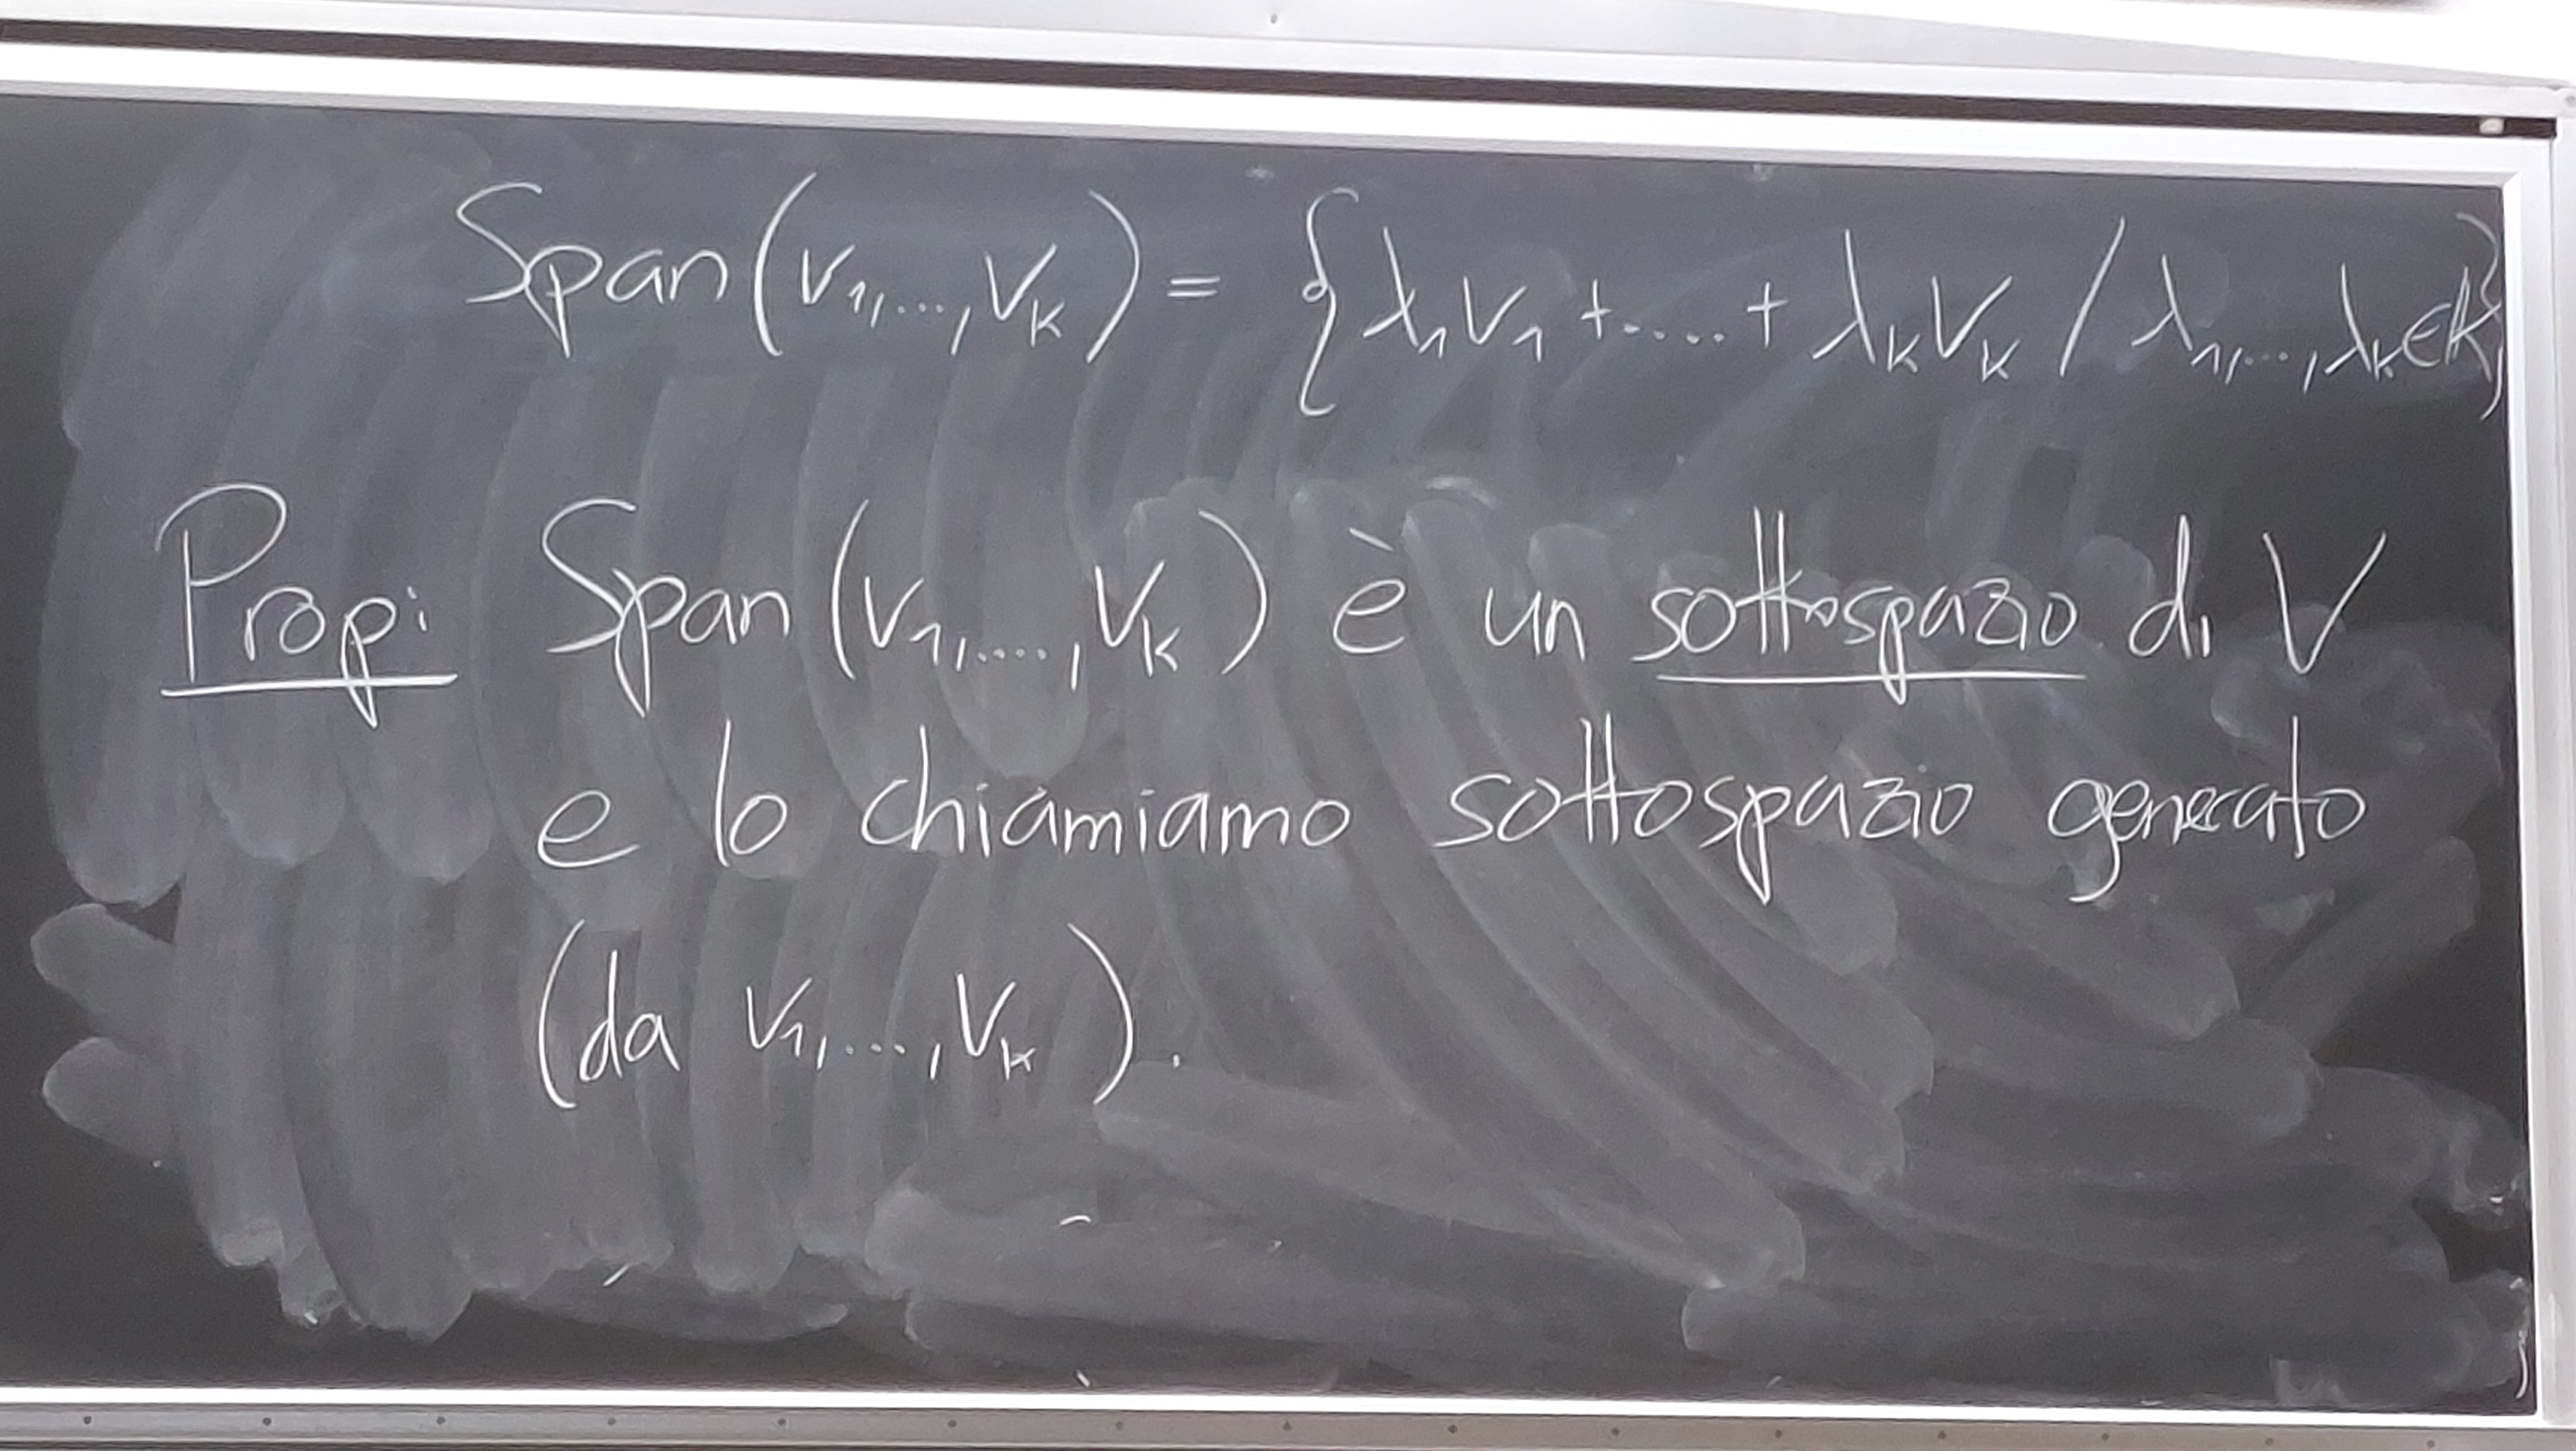 Span(v₁,...,vₖ) = {λ₁v₁ + .... + λₖvₖ / λ₁,...,λₖ∈K}
Prop: Span(v₁,....,vₖ) è un sottospazio di V
e lo chiamiamo sottospazio generato
(da v₁,...,vₖ).